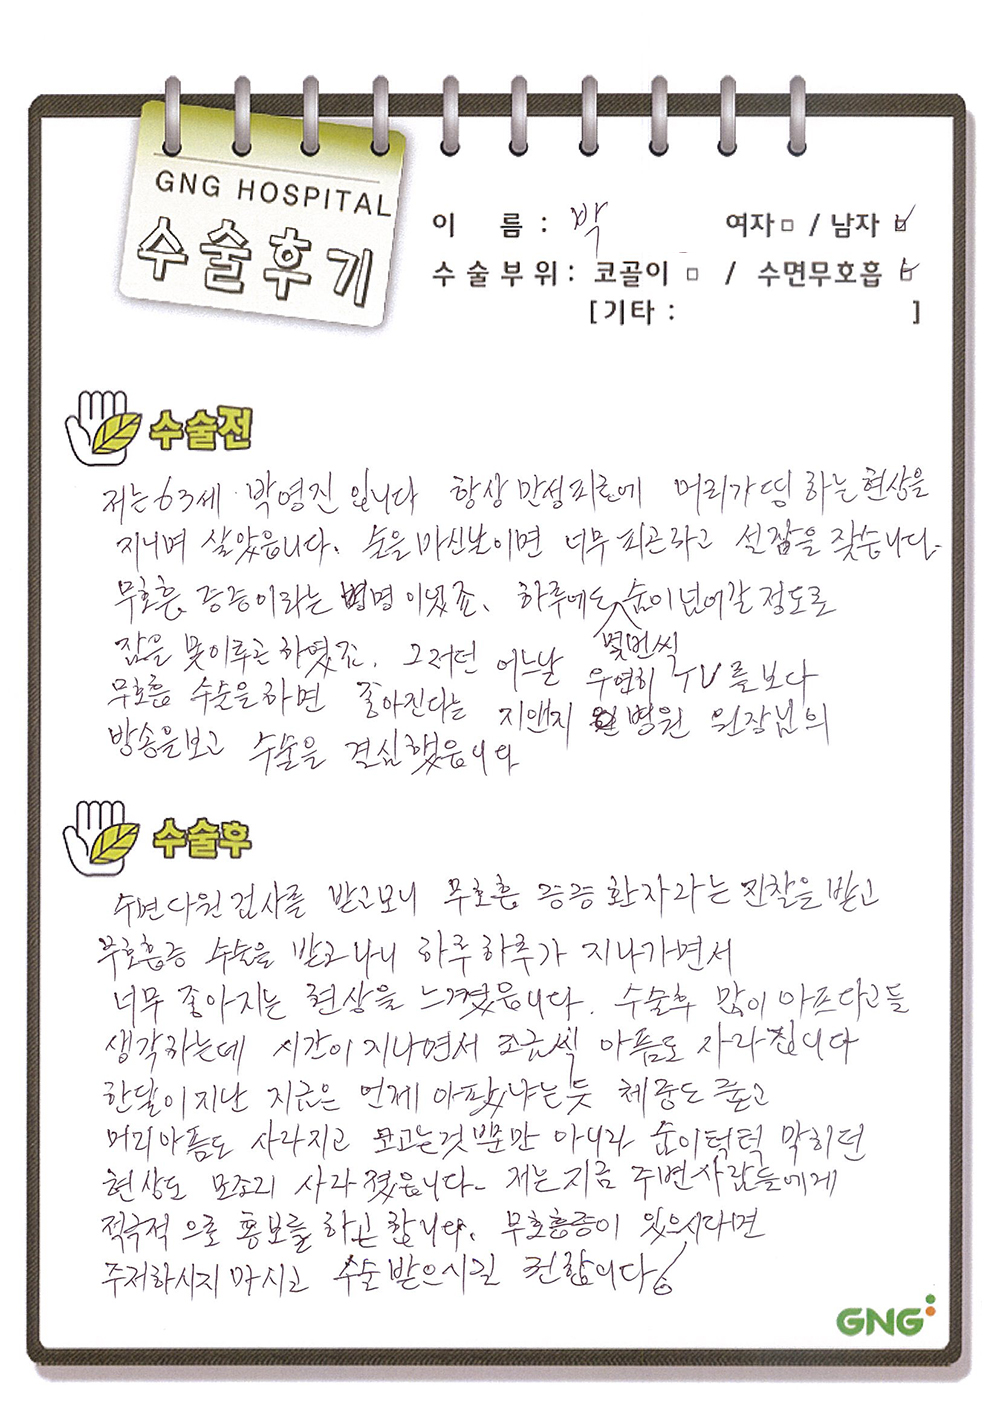 GNG HOSPITAL
수술후기
이 름 : 박 여자 □ / 남자 ☑
수술부위 : 코골이 □ / 수면무호흡 ☑
[기타 : ]
수술전
저는 63세 박영진 입니다 항상 만성피로에 머리가 띵 하는 현상을
지니며 살았읍니다. 술을 마신날이면 너무 피곤하고 선잠을 잣습니다.
무호흡 증증이라는 병명 이였죠. 하루에도 몇번씩 숨이 넘어갈 정도로
잠을 못이루곤 하였죠. 그러던 어느날 우연히 TV를 보다
무호흡 수술을 하면 좋아진다는 지앤지 병원 원장님의
방송을 보고 수술을 결심했읍니다
수술후
수면다원 검사를 받고보니 무호흡 증증 환자라는 진찰을 받고
무호흡증 수술을 받고나니 하루하루가 지나가면서
너무 좋아지는 현상을 느꼈읍니다. 수술후 많이 아프다고들
생각하는데 시간이 지나면서 조금씩 아픔도 사라집니다
한달이 지난 지금은 언제 아팠냐는듯 체중도 줄고
머리아픔도 사라지고 코고는것 뿐만 아니라 숨이 턱턱 막히던
현상도 모조리 사라졌읍니다. 저는 지금 주변사람들에게
적극적 으로 홍보를 하곤 합니다. 무호흡증이 있으시다면
주저하시지 마시고 수술 받으시길 권합니다.
GNG